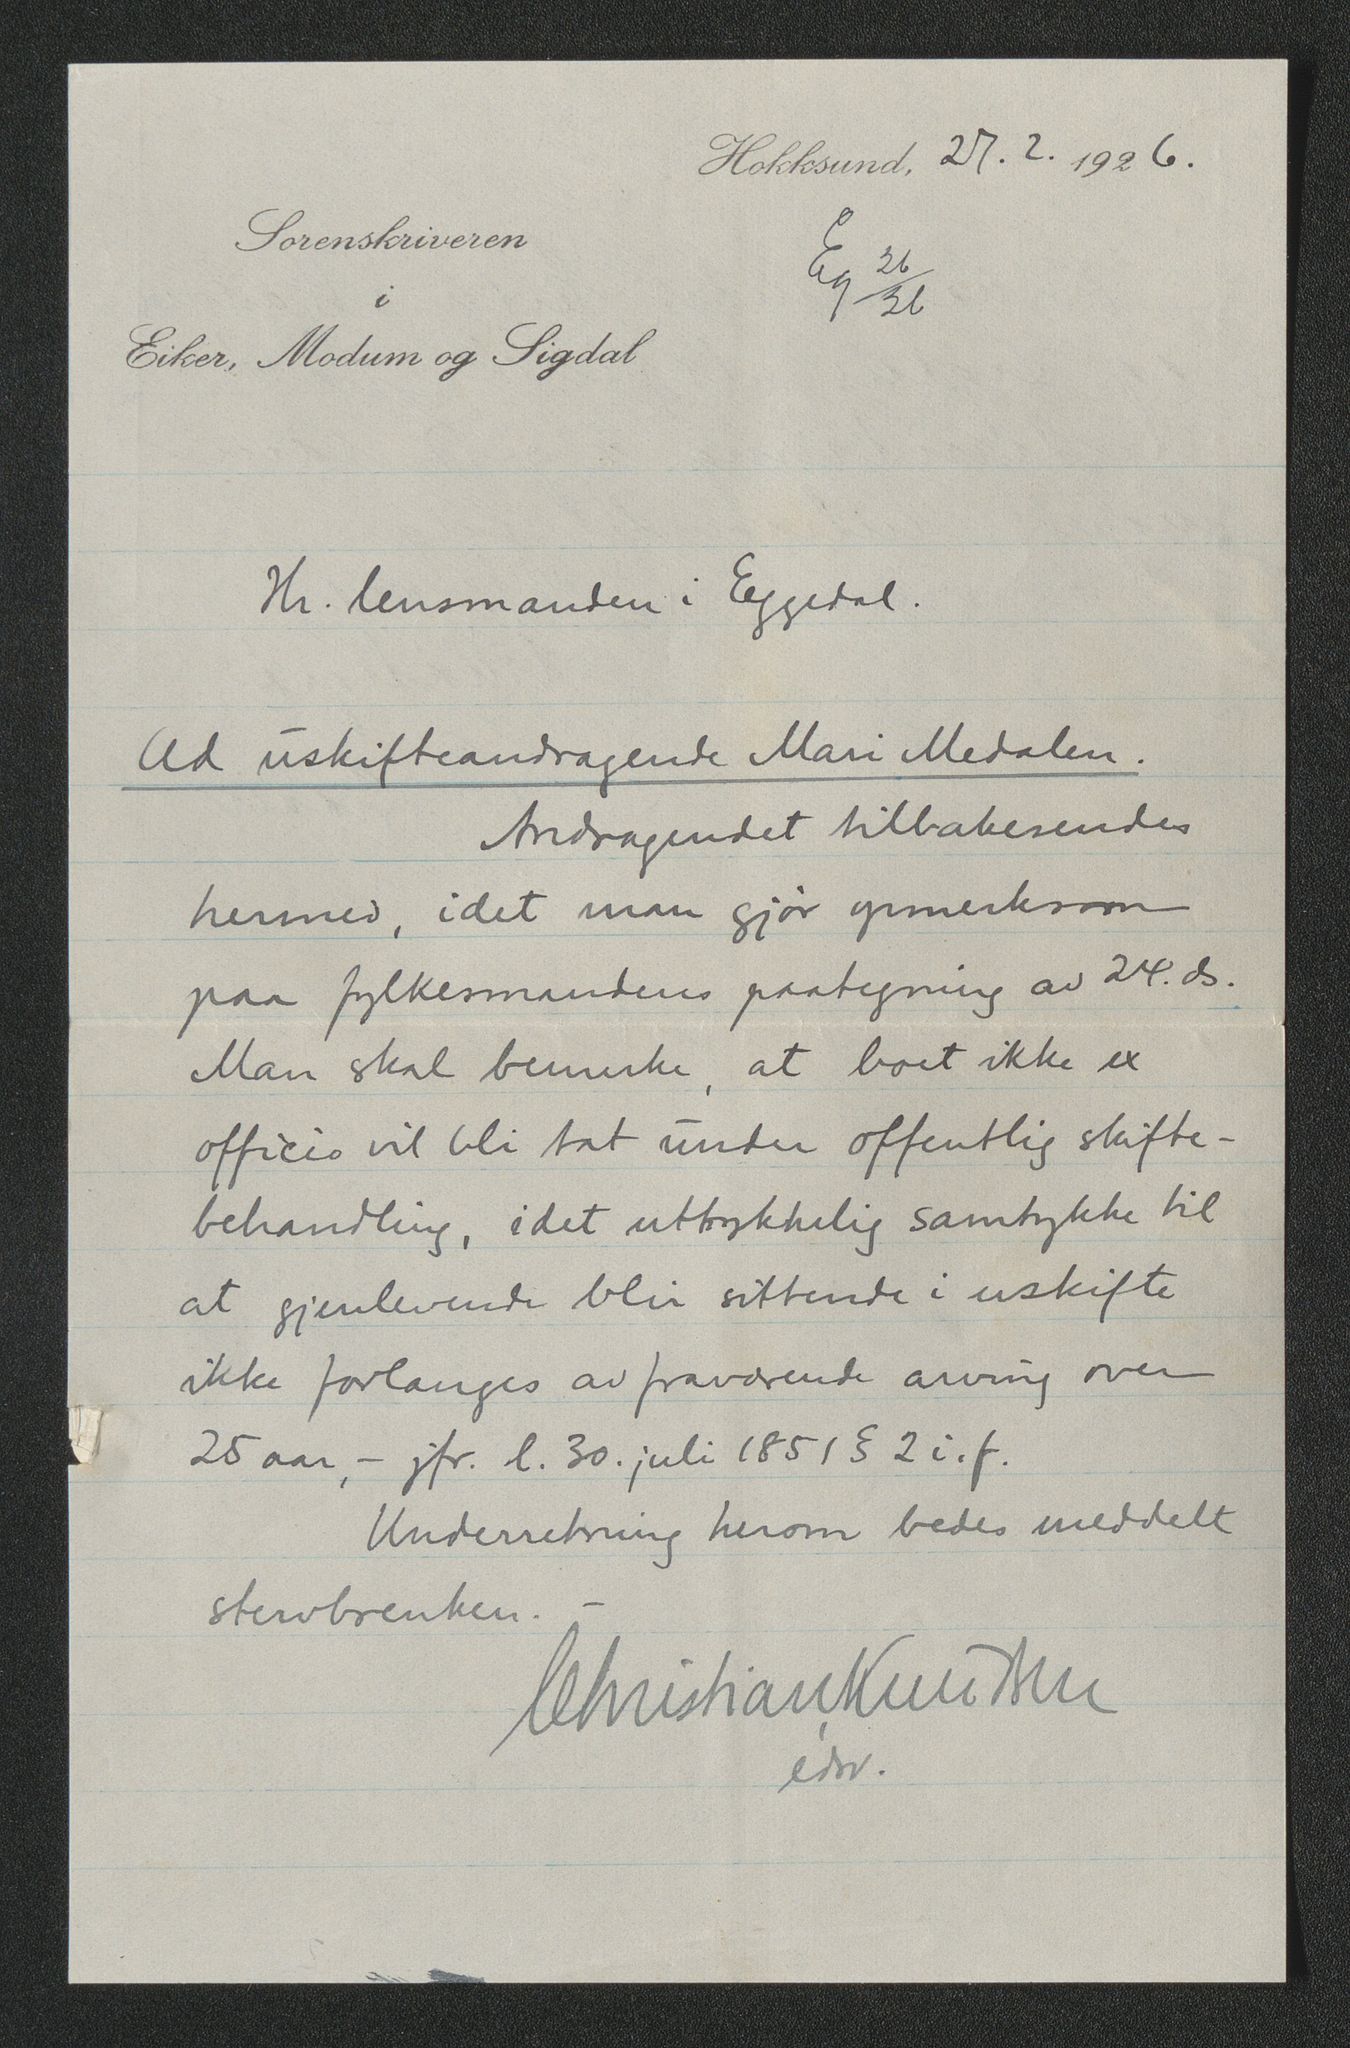 Hokksund, 27. 2. 1926.
Sorenskriveren
i
Eiker, Modum og Sigdal
Eg 26/26
Hr. lensmanden i Eggedal.
Ad uskifteandragende Mari Medalen.
Andragendet tilbakesendes
hermed, idet man gjør opmerksom
paa fylkesmandens paategning av 24. ds.
Man skal bemerke, at boet ikke ex
officio vil bli tat under offentlig skifte-
behandling, idet uttrykkelig samtykke til
at gjenlevende blir sittende i uskifte
ikke forlanges av fraværende arving over
25 aar, – jfr. l. 30. juli 1851 § 2 i.f.
Underretning herom bedes meddelt
stervboenken. –
Christian Knudsen
edsv.